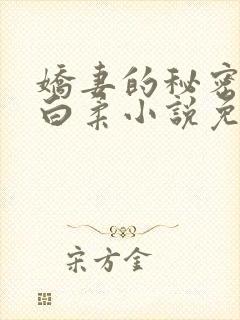 嬌妻的秘密
白柔小說免
宋方金